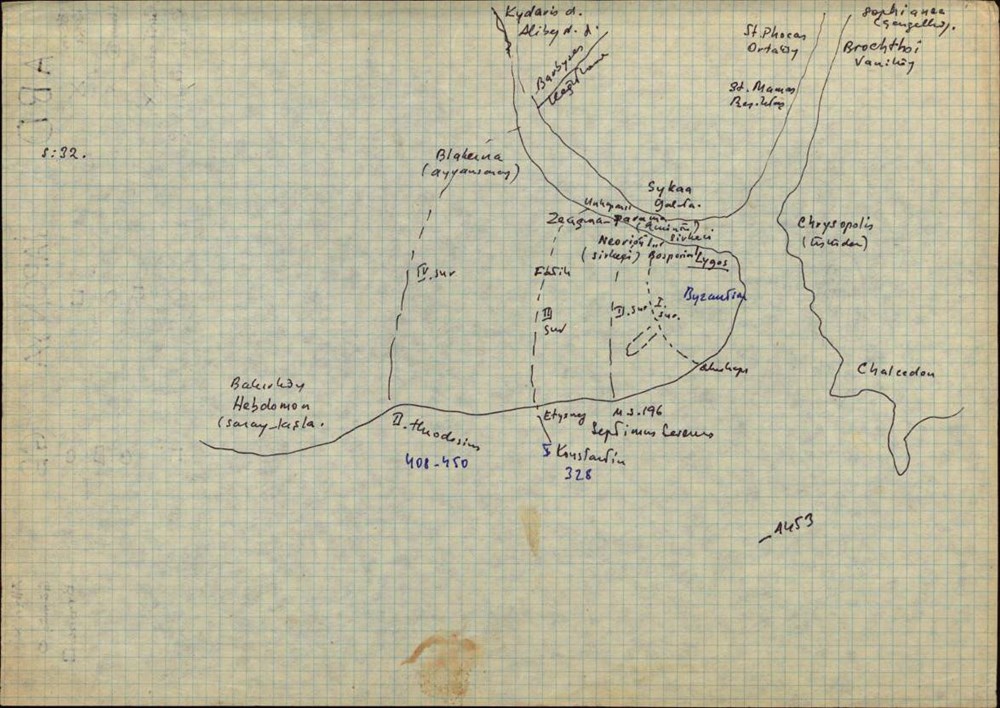 Kydaris d.
Alibey d. d.
Barbyses
Kağıthane
St. Phocas
Ortaköy
Sophianae
(Çengelköy).
Brochthoi
Vaniköy
St. Mamas
Beşiktaş
S:32.
Blakerna
(ayvansaray)
Sykaa
Galata.
Unkapanı
Zeugman
Parama
(Eminönü)
Sirkeci
Neorion
(sirkeci)
Bosporion
Lygos
Chrysopolis
(Üsküdar)
IV. sur
Fatih
III
sur
II. sur
I.
sur.
Byzantion
Ahırkapı
Chalcedon
Bakırköy
Hebdomon
(saray-kışla.
II. theodosius
408-450
M.S. 196
Septimus Severus
Konstantin
328
A453